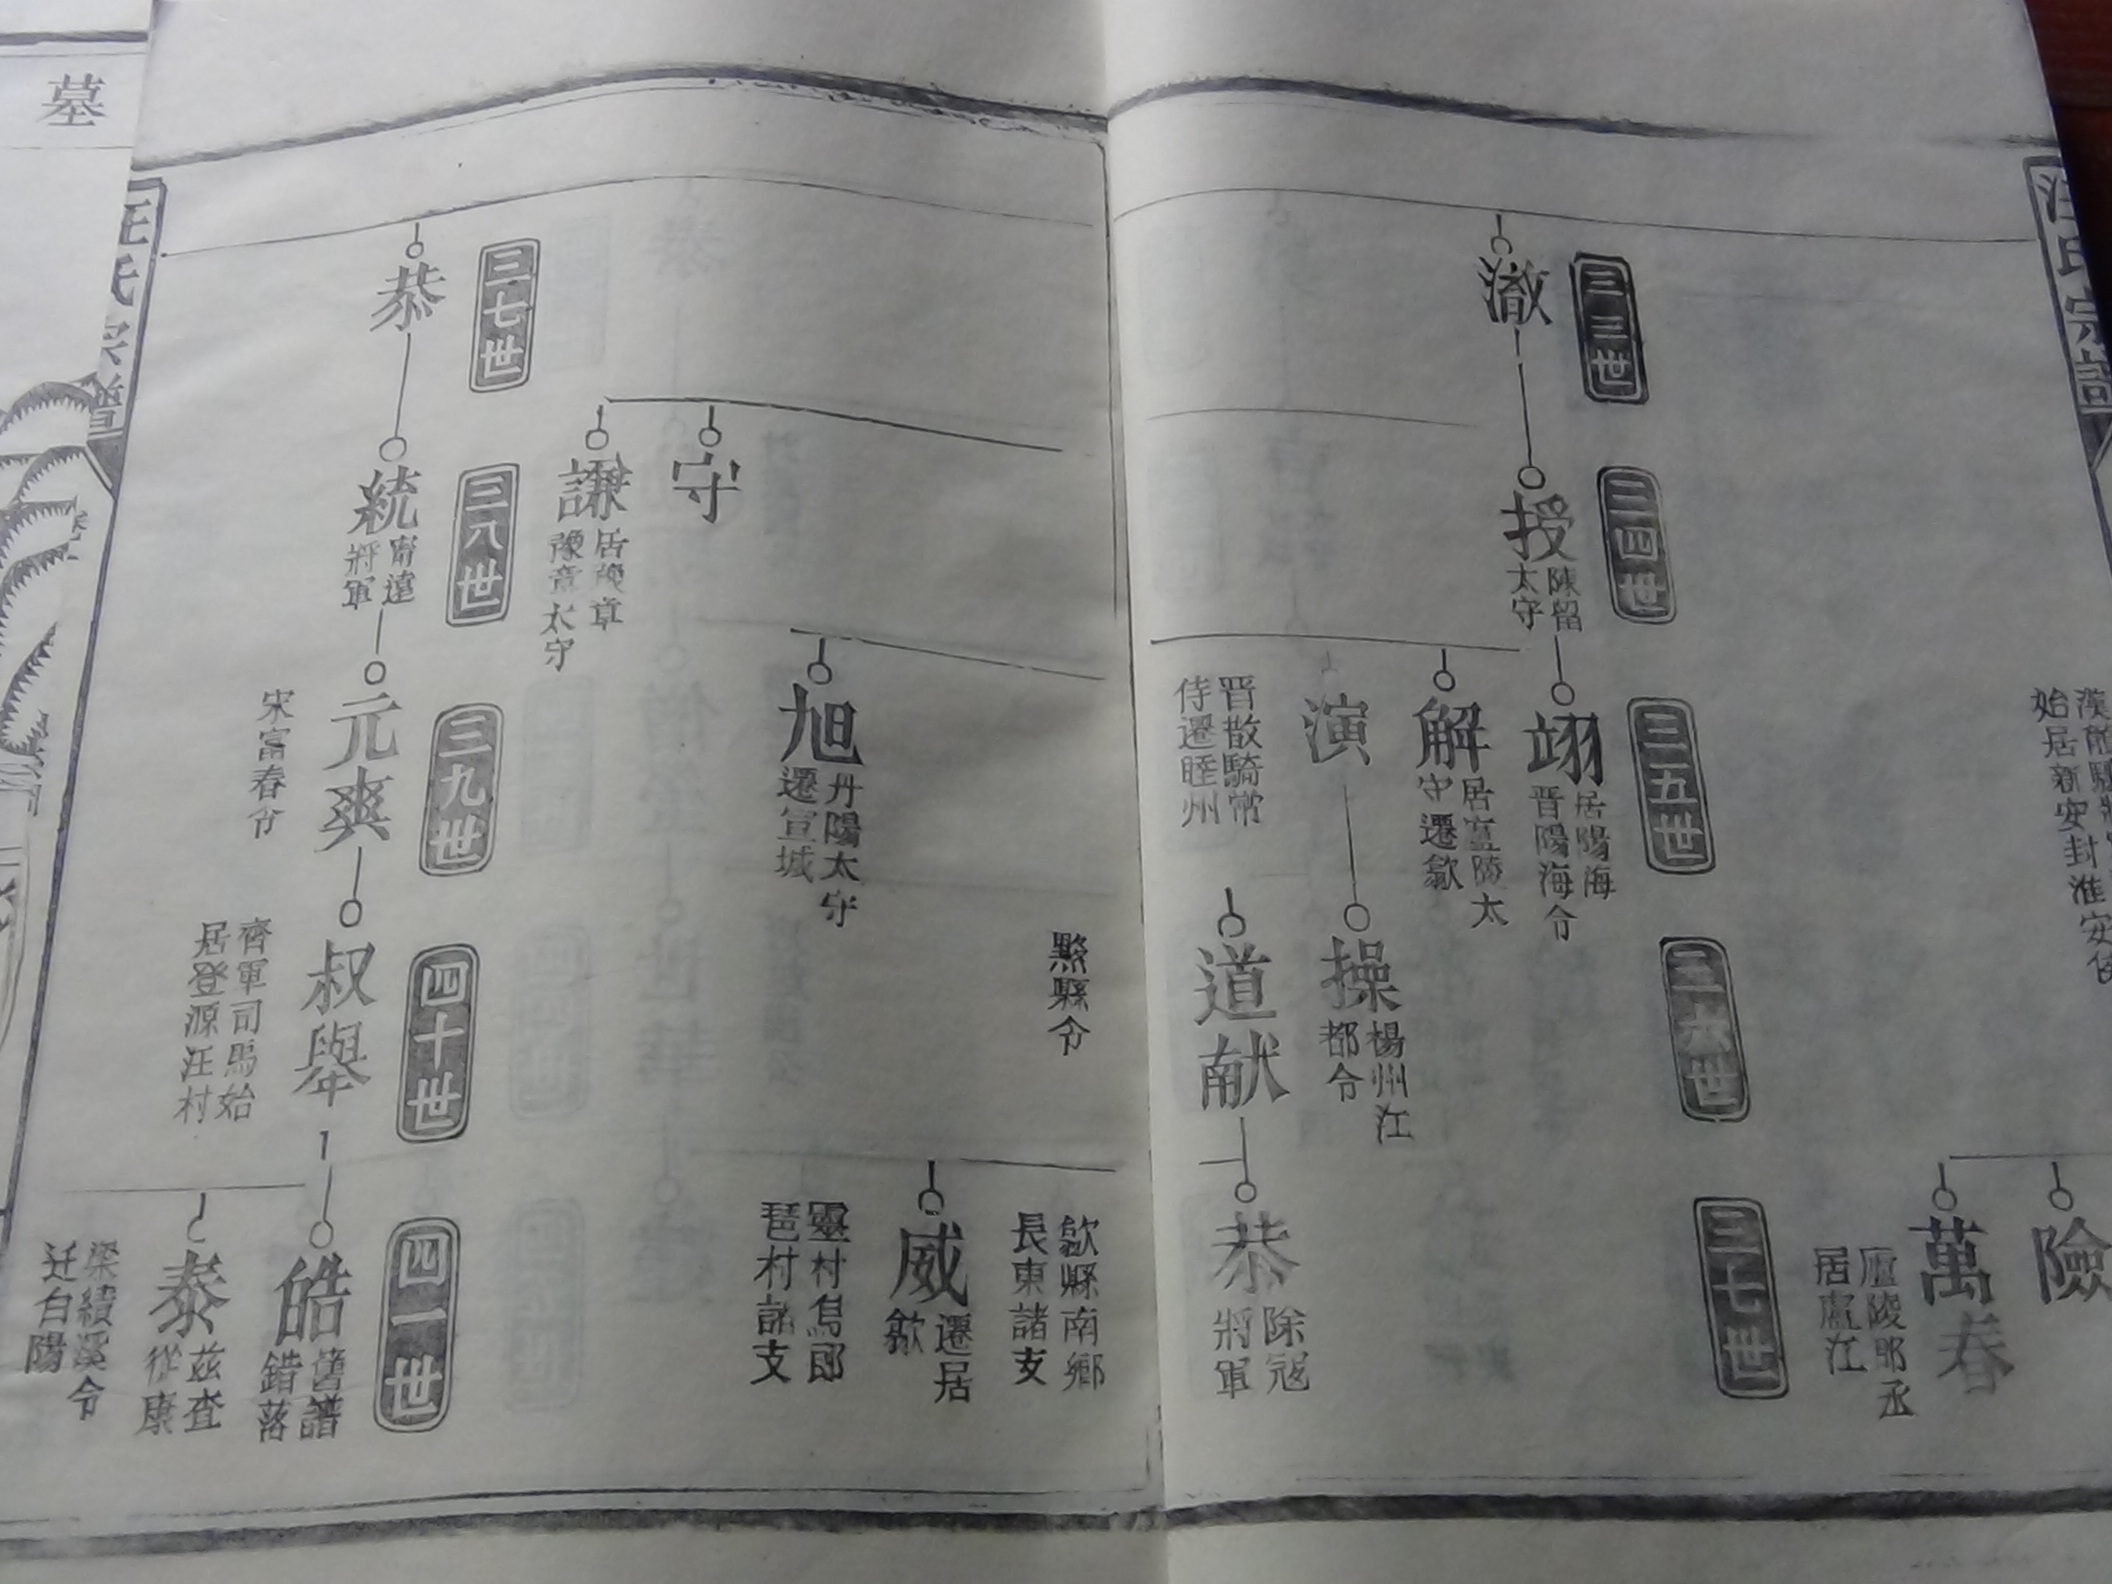 險
萬春
廬陵郡丞
居廬江
三三世
澈
三四世
授
陳留
太守
三五世
翊
居陽海
晋陽海令
解
居廬陵太
守遷歙
演
晋散騎常
侍遷睦州
三六世
操
楊州江
都令
道献
三七世
恭
除冦
將軍
黟縣令
歙縣南鄉
長東諸支
威
遷居
歙
靈村烏郎
琶村諸支
旭
丹陽太守
遷宣城
守
謙
居豫章
豫章太守
三七世
恭
三八世
統
甯遠
將軍
三九世
元爽
宋富春令
四十世
叔舉
齊軍司馬始
居登源汪村
四一世
皓
舊譜
錯落
泰
茲查
從康
梁績溪令
迁白陽
汪氏宗譜
墓